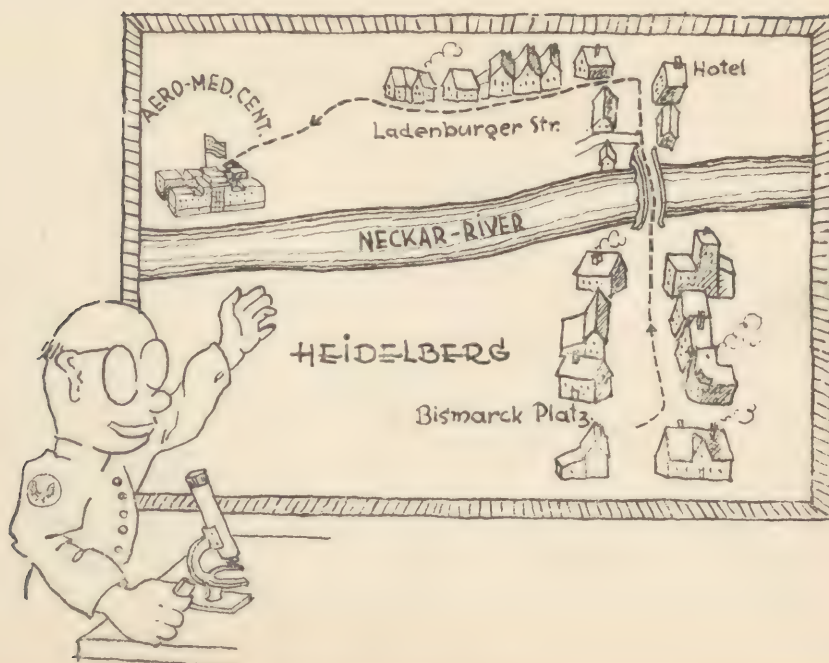 AERO-MED. CENT.
Hotel
Ladenburger Str.
NECKAR-RIVER
HEIDELBERG
Bismarck Platz